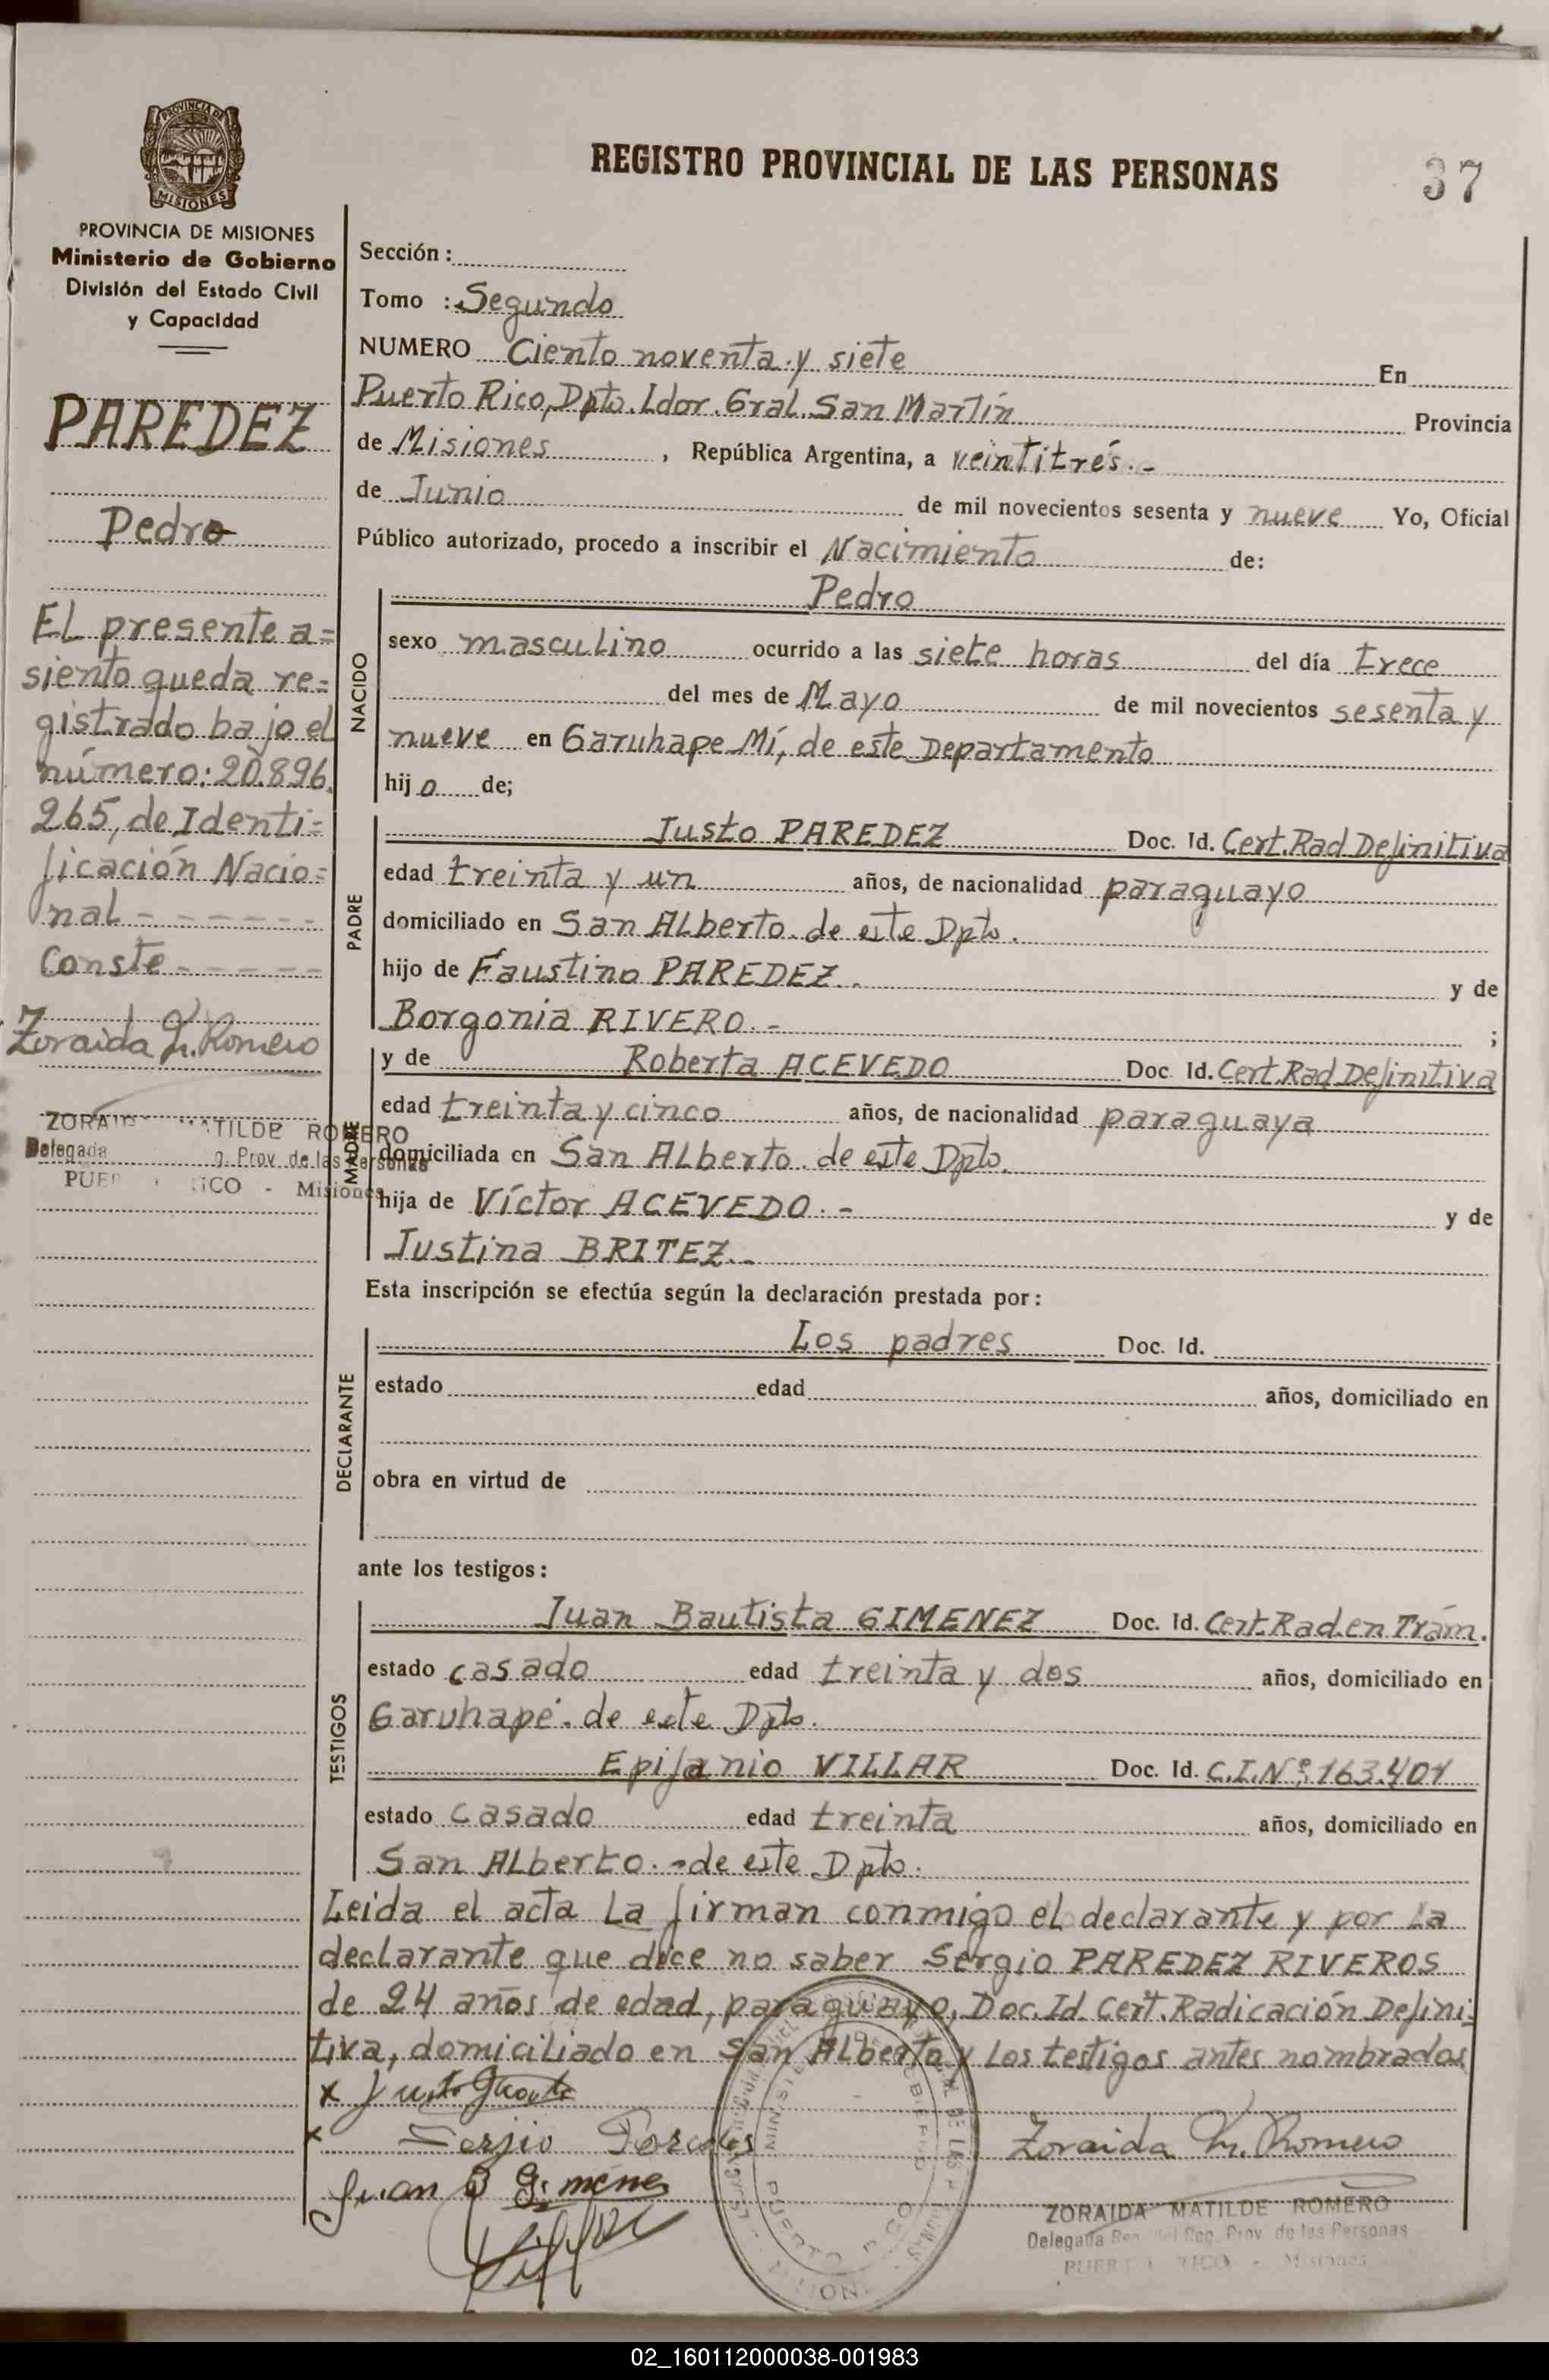 REGISTRO PROVINCIAL DE LAS PERSONAS
37
PROVINCIA DE MISIONES
PROVINCIA DE MISIONES
Ministerio de Gobierno
División del Estado Civil
y Capacidad
PAREDEZ
Pedro
EL presente a=
siento queda re=
gistrado bajo el
número: 20.896.
265, de Identi=
ficación Nacio=
nal - - - - - -
Conste - - - - -
Zoraida M. Romero
ZORAIDA MATILDE ROMERO
Delegada g. Prov. de las Personas
PUERTO RICO - Misiones
Sección :
Tomo : Segundo
NUMERO Ciento noventa y siete En
Puerto Rico, Dpto. Ldor. Gral. San Martín Provincia
de Misiones , República Argentina, a veintitrés.-
de Junio de mil novecientos sesenta y nueve Yo, Oficial
Público autorizado, procedo a inscribir el Nacimiento de:
NACIDO
Pedro
sexo masculino ocurrido a las siete horas del día trece
del mes de Mayo de mil novecientos sesenta y
nueve en Garuhape Mí, de este Departamento
hijo de;
PADRE
Justo PAREDEZ Doc. Id. Cert. Rad Definitiva
edad treinta y un años, de nacionalidad paraguayo
domiciliado en San ALberto. de este Dpto.
hijo de Faustino PAREDEZ.- y de
Borgonia RIVERO.- ;
MADRE
y de Roberta ACEVEDO Doc. Id. Cert. Rad Definitiva
edad treinta y cinco años, de nacionalidad paraguaya
domiciliada en San ALberto. de este Dpto.
hija de Víctor ACEVEDO.- y de
Justina BRITEZ.-
Esta inscripción se efectúa según la declaración prestada por:
DECLARANTE
Los padres Doc. Id.
estado edad años, domiciliado en
obra en virtud de
ante los testigos:
TESTIGOS
Juan Bautista GIMENEZ Doc. Id. Cert. Rad. en Trám.
estado casado edad treinta y dos años, domiciliado en
Garuhapé. de este Dpto.
Epifanio VILLAR Doc. Id. C.I.Nº: 163.401
estado casado edad treinta años, domiciliado en
San ALberto.- de este Dpto.
Leida el acta La firman conmigo el declarante y por la
declarante que dice no saber Sergio PAREDEZ RIVEROS
de 24 años de edad, paraguayo, Doc. Id. Cert. Radicación Defini=
tiva, domiciliado en San ALberto y Los testigos antes nombrados
x Justo
x Serjio
Juan B Gimenez
Zoraida M. Romero
ZORAIDA MATILDE ROMERO
Delegada Reg. Prov. de las Personas
PUERTO RICO - Misiones
02_160112000038-001983